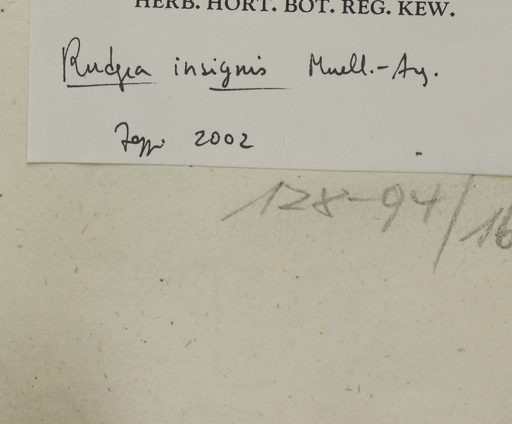 HERB. HORT. BOT. REG. KEW.
Rudgea insignis Muell.-Arg.
Zappi 2002
128-94/16